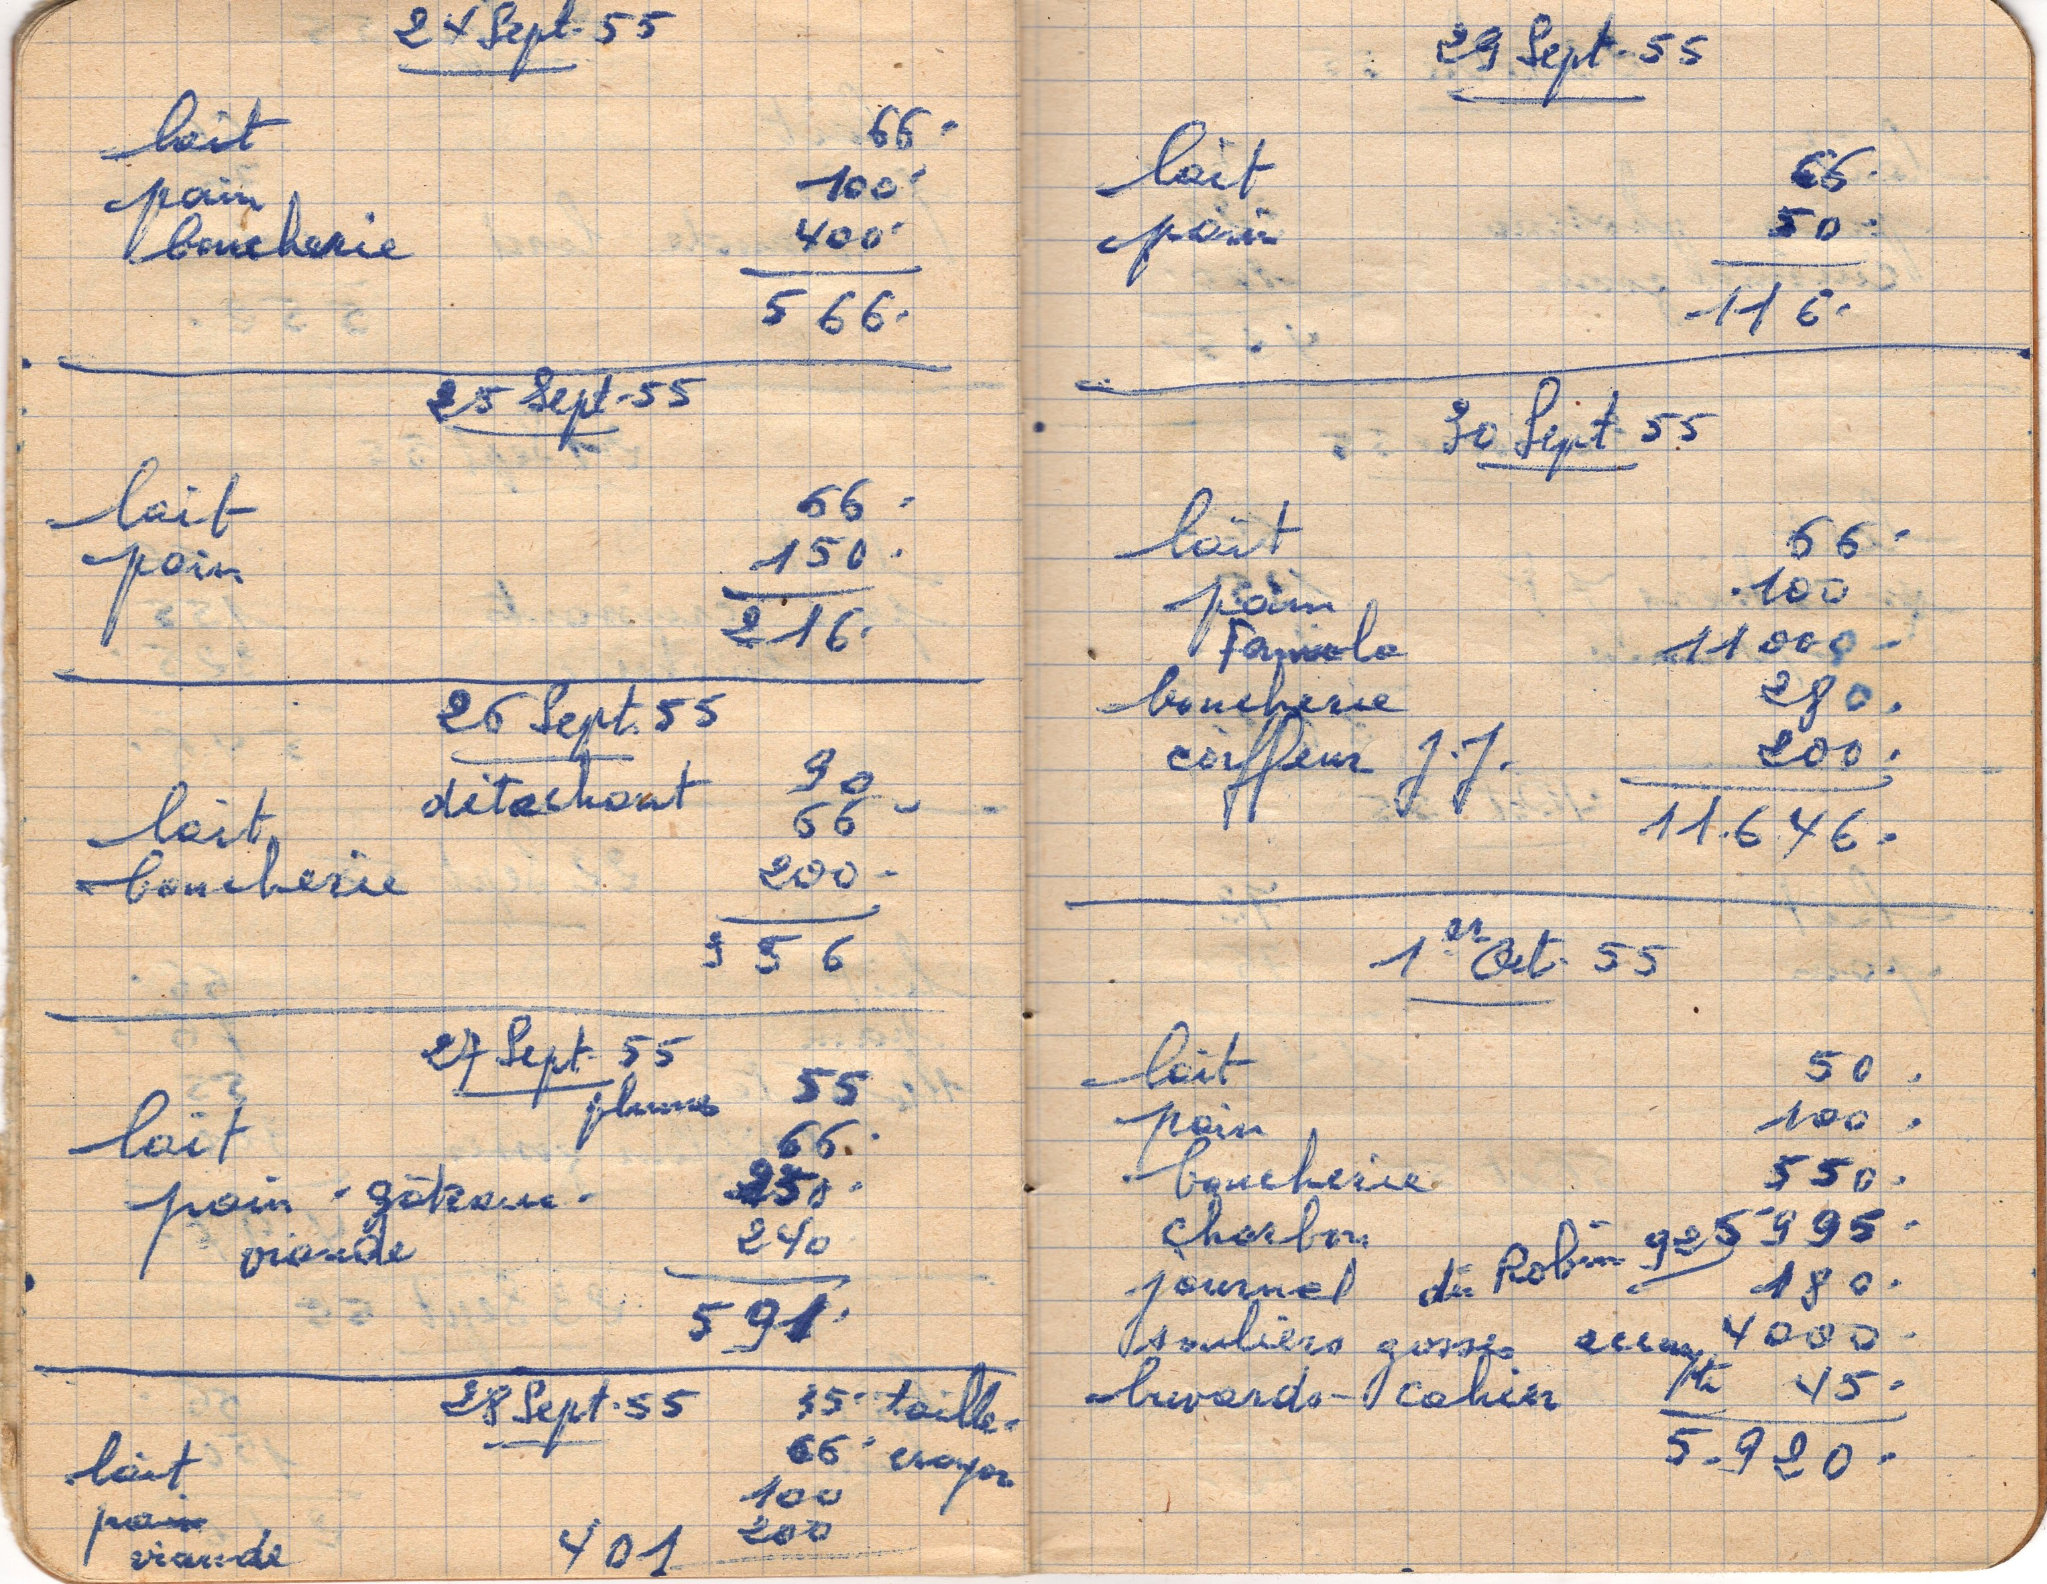 24 Sept. 55
lait 66.
pain 100.
boucherie 400.
566.
25 Sept. 55
lait 66.
pain 150.
216.
26 Sept. 55
détachant 90
lait 66
boucherie 200
356
27 Sept. 55
plumes 55
lait 66.
pain - gâteaux. 250.
viande 240
591.
28 Sept. 55
35 taille-
lait 66 crayon
pain 100
viande 200
401
29 Sept. 55
lait 66.
pain 50.
116.
30 Sept. 55
lait 66.
pain 100
11000
boucherie 280.
coiffeur J.J. 200.
11.646.
1er Oct. 55
lait 50.
pain 100.
boucherie 550.
charbon 995.
journal de Robin 925 180.
souliers gosses 4000
buvards - cahier 45.
5.920.